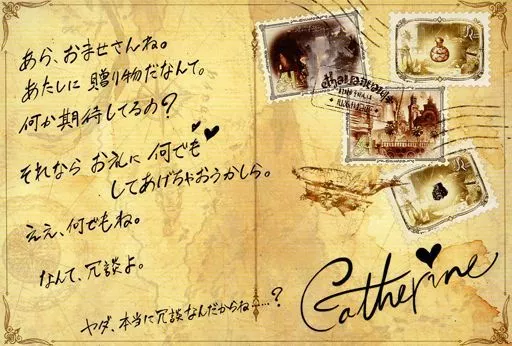 あら、おませさんね。
あたしに贈り物だなんて。
何か期待してるの?
それなら お礼に 何でも♥♥
してあげちゃおうかしら。
ええ、何でもね。
なんて、冗談よ。
ヤダ、本当に冗談なんだからね……?
Catherine♥